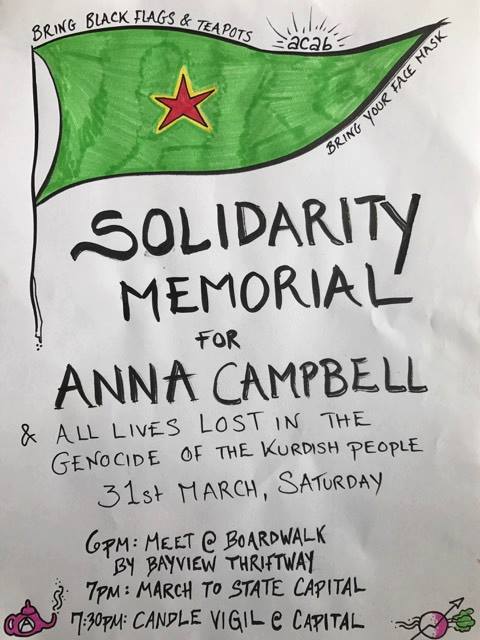 BRING BLACK FLAGS & TEAPOTS
acab
BRING YOUR FACE MASK
SOLIDARITY
MEMORIAL
FOR
ANNA CAMPBELL
& ALL LIVES LOST IN THE
GENOCIDE OF THE KURDISH PEOPLE
31st MARCH, SATURDAY
6PM: MEET @ BOARDWALK
BY BAYVIEW THRIFTWAY
7PM: MARCH TO STATE CAPITAL
7:30PM: CANDLE VIGIL @ CAPITAL
A